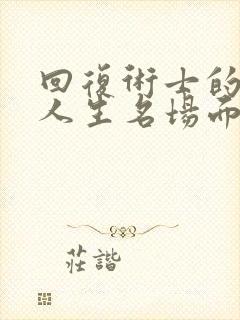 回復術士的
人生名場面
莊諧